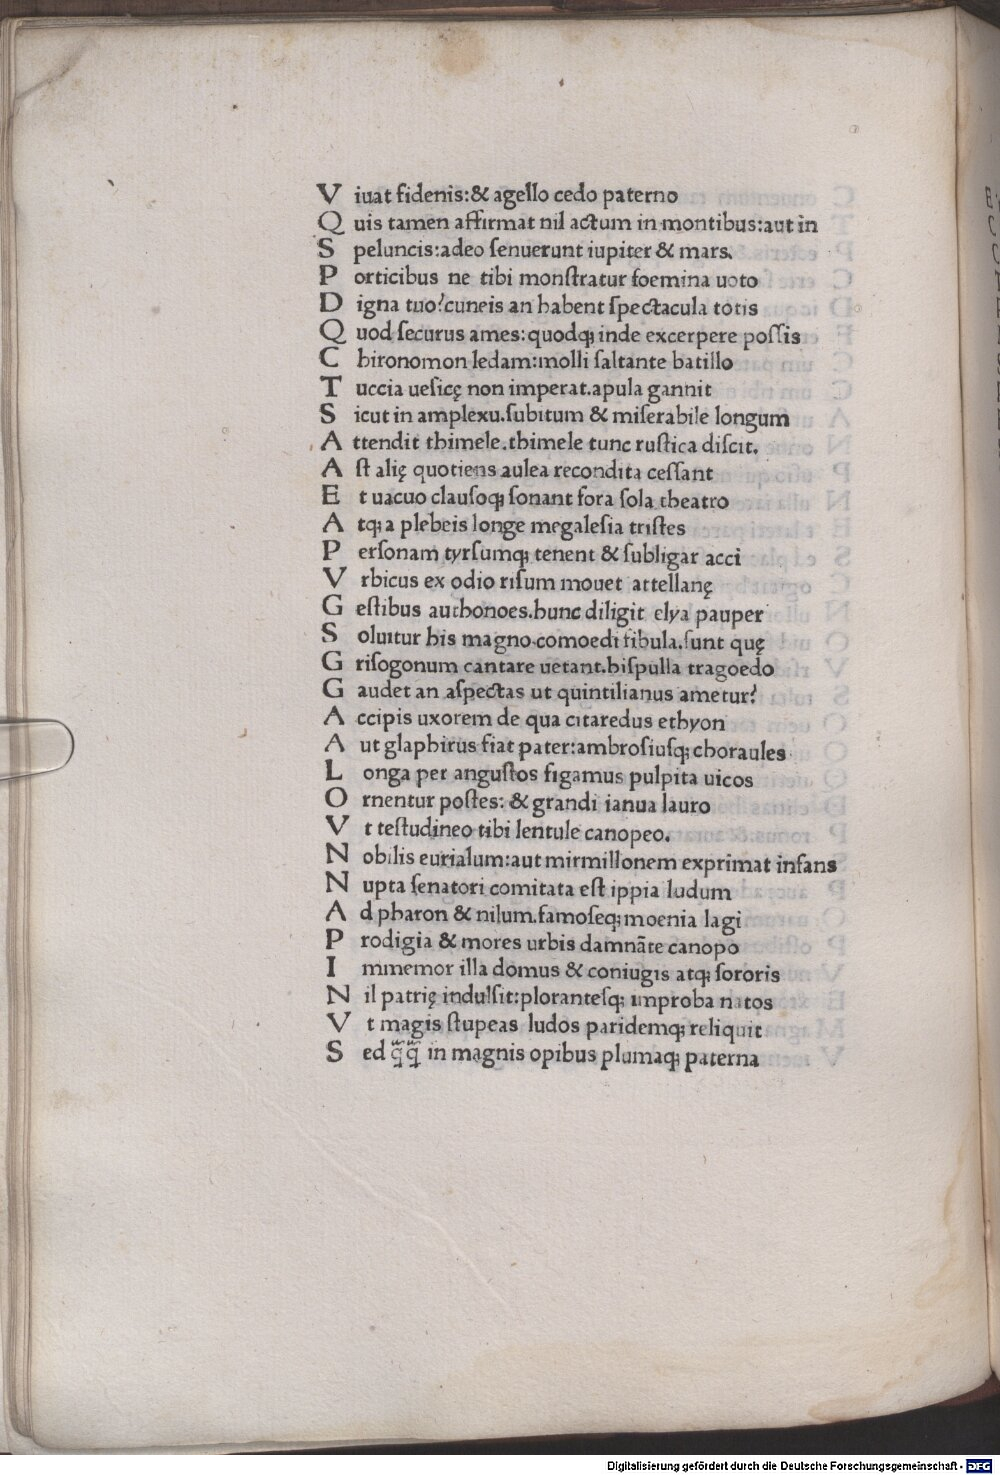 V iuat fidenis:& agello cedo paterno
Q uis tamen affirmat nil actum in montibus:aut in
S peluncis:adeo ſenuerunt iupiter & mars.
P orticibus ne tibi monſtratur foemina uoto
D igna tuo?cuneis an habent ſpectacula totis
Q uod ſecurus ames:quodq; inde excerpere poſſis
C hironomon ledam:molli ſaltante batillo
T uccia ueſicę non imperat.apula gannit
S icut in amplexu.ſubitum & miſerabile longum
A ttendit thimele.thimele tunc ruſtica diſcit.
A ſt alię quotiens aulea recondita ceſſant
E t uacuo clauſoq; ſonant fora ſola theatro
A tq; a plebeis longe megaleſia triſtes
P erſonam tyrſumq; tenent & ſubligar acci
V rbicus ex odio riſum mouet attellanę
G eſtibus authonoes.hunc diligit elya pauper
S oluitur his magno comoedi fibula.ſunt quę
G riſogonum cantare uetant.hiſpulla tragoedo
G audet an aſpectas ut quintilianus ametur?
A ccipis uxorem de qua citaredus ethyon
A ut glaphirus fiat pater:ambroſiuſq; choraules
L onga per anguſtos figamus pulpita uicos
O rnentur poſtes: & grandi ianua lauro
V t teſtudineo tibi lentule canopeo.
N obilis eurialum:aut mirmillonem exprimat infans
N upta ſenatori comitata eſt ippia ludum
A d pharon & nilum.famoſeq; moenia lagi
P rodigia & mores urbis damnāte canopo
I mmemor illa domus & coniugis atq; ſororis
N il patrię indulſit:ploranteſq; improba natos
V t magis ſtupeas ludos paridemq; reliquit
S ed q̄q̄ in magnis opibus plumaq; paterna
Digitalisierung gefördert durch die Deutsche Forschungsgemeinschaft - DFG